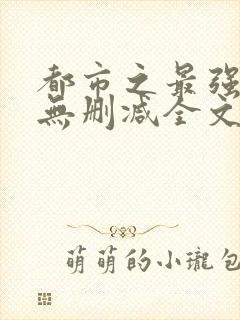 都市之最强
無删减全文
萌萌的小瓏包